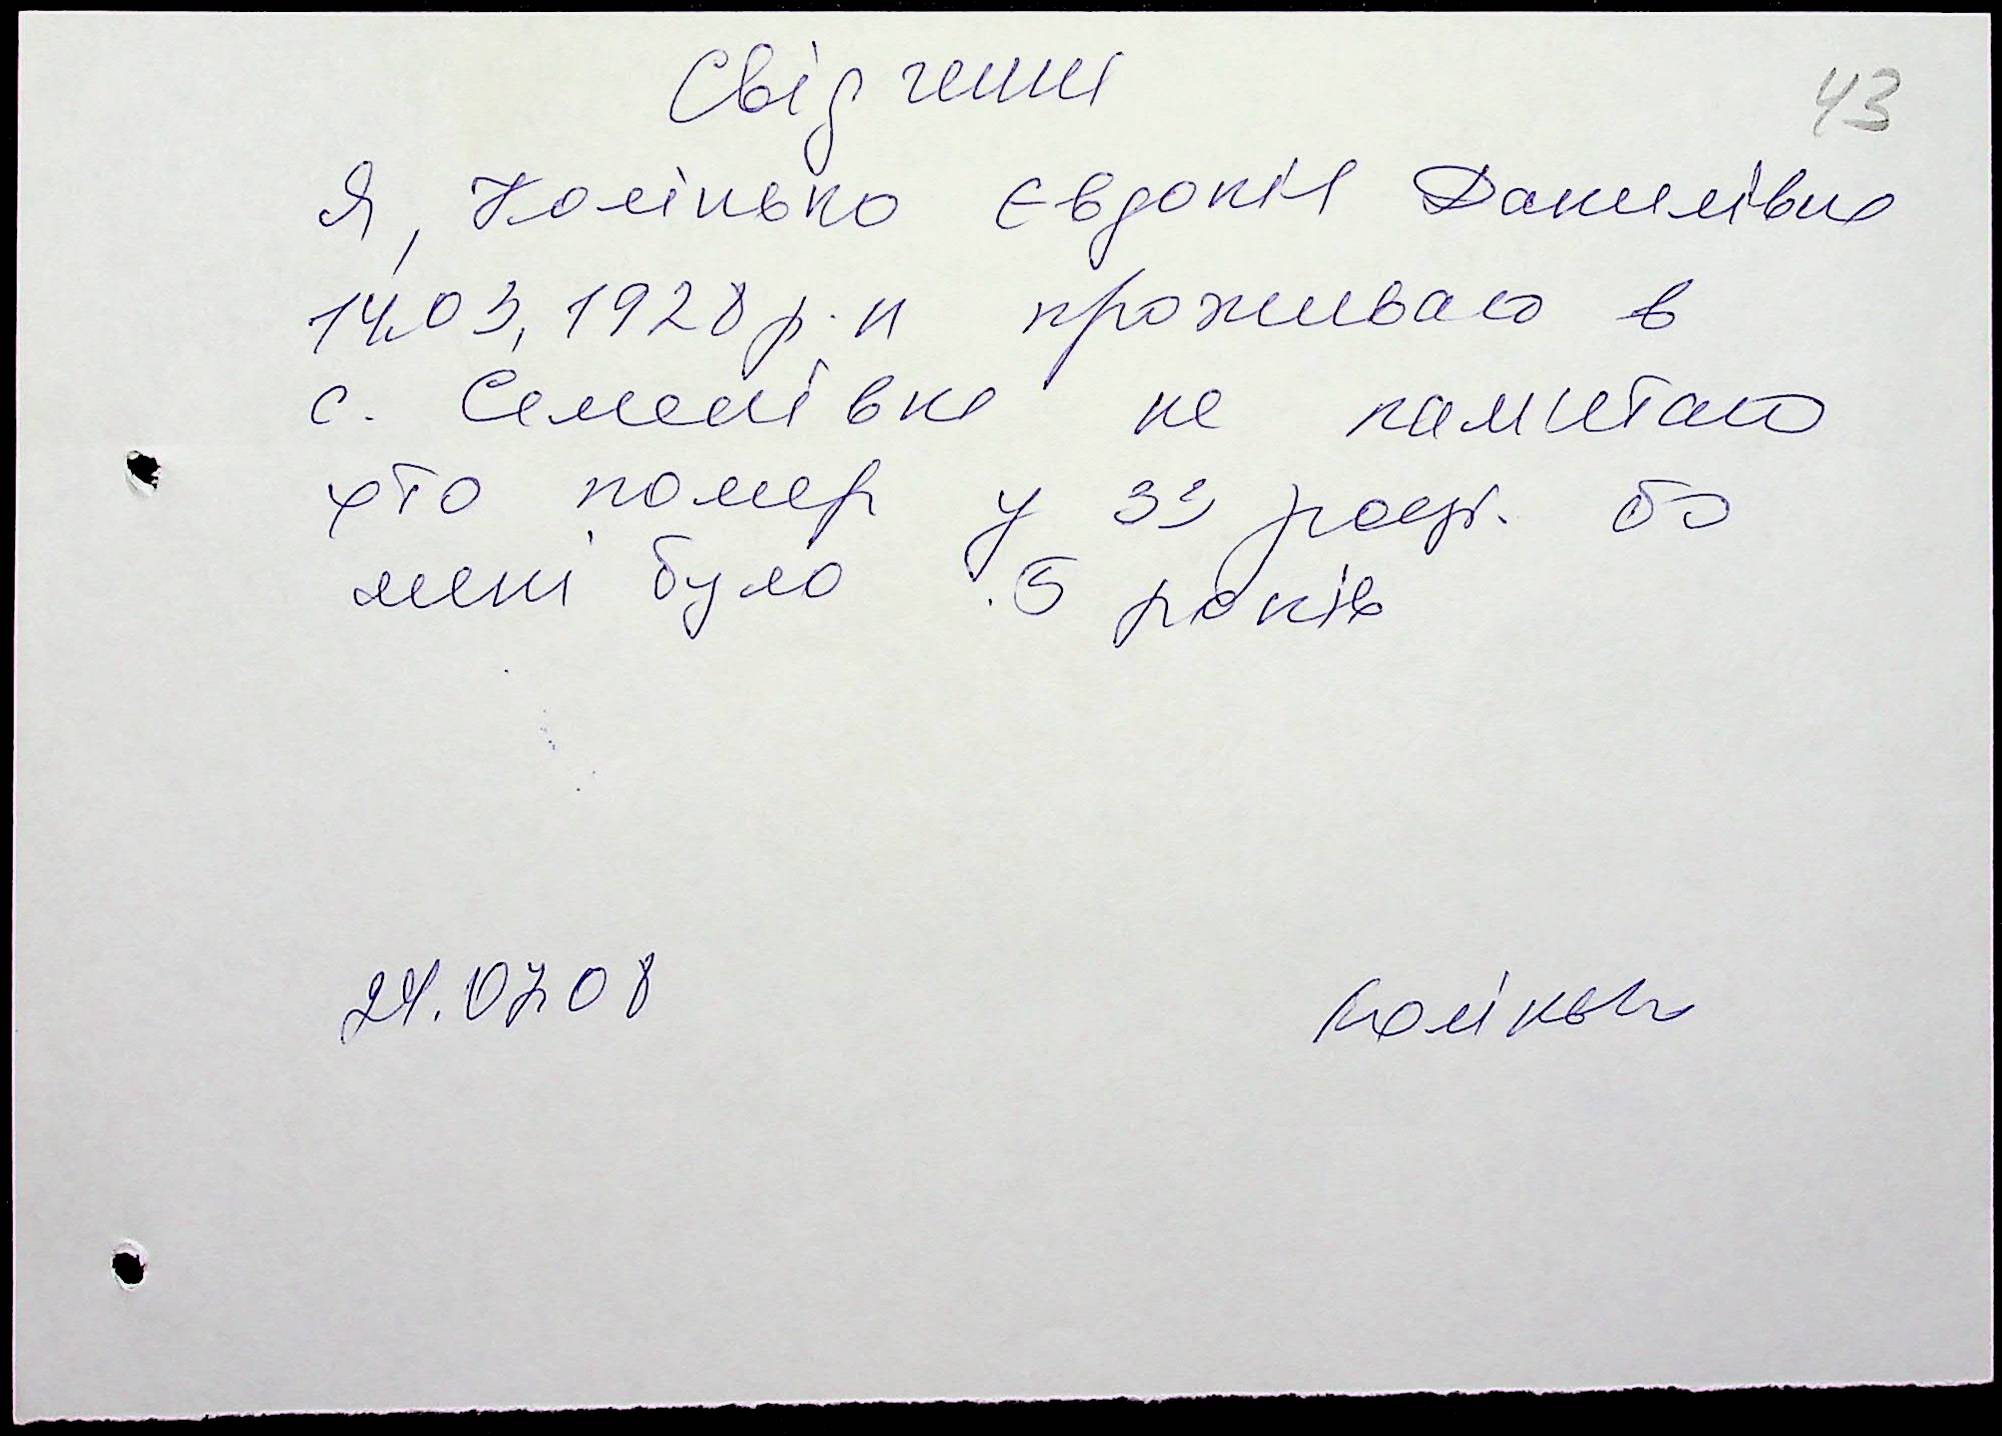 Свідчення
43
Я, Колінько Євдокія Данилівна
14.03.1928 р.н проживаю в
с. Семенівка не памятаю
хто помер у 33 році. бо
мені було 5 років
24.07.08
Колінько